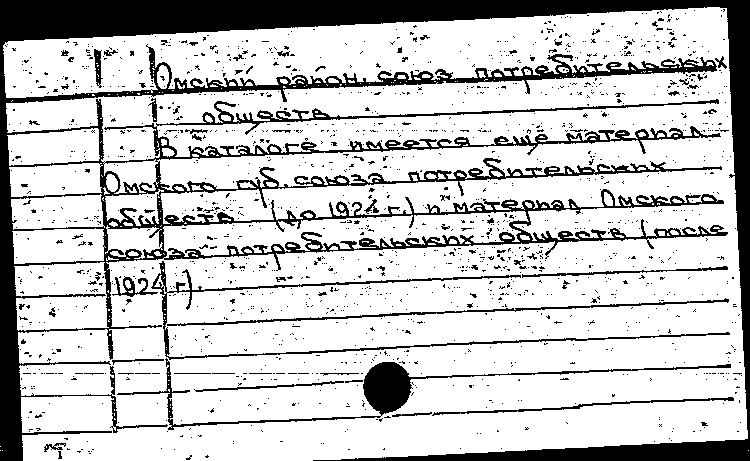 Омский район. союз потребительских
обществ
В каталоге имеется еще материал
Омского губ. союза потребительских
обществ (до 1924 г.) и материал Омского
союза потребительских обществ (после
1924 г).